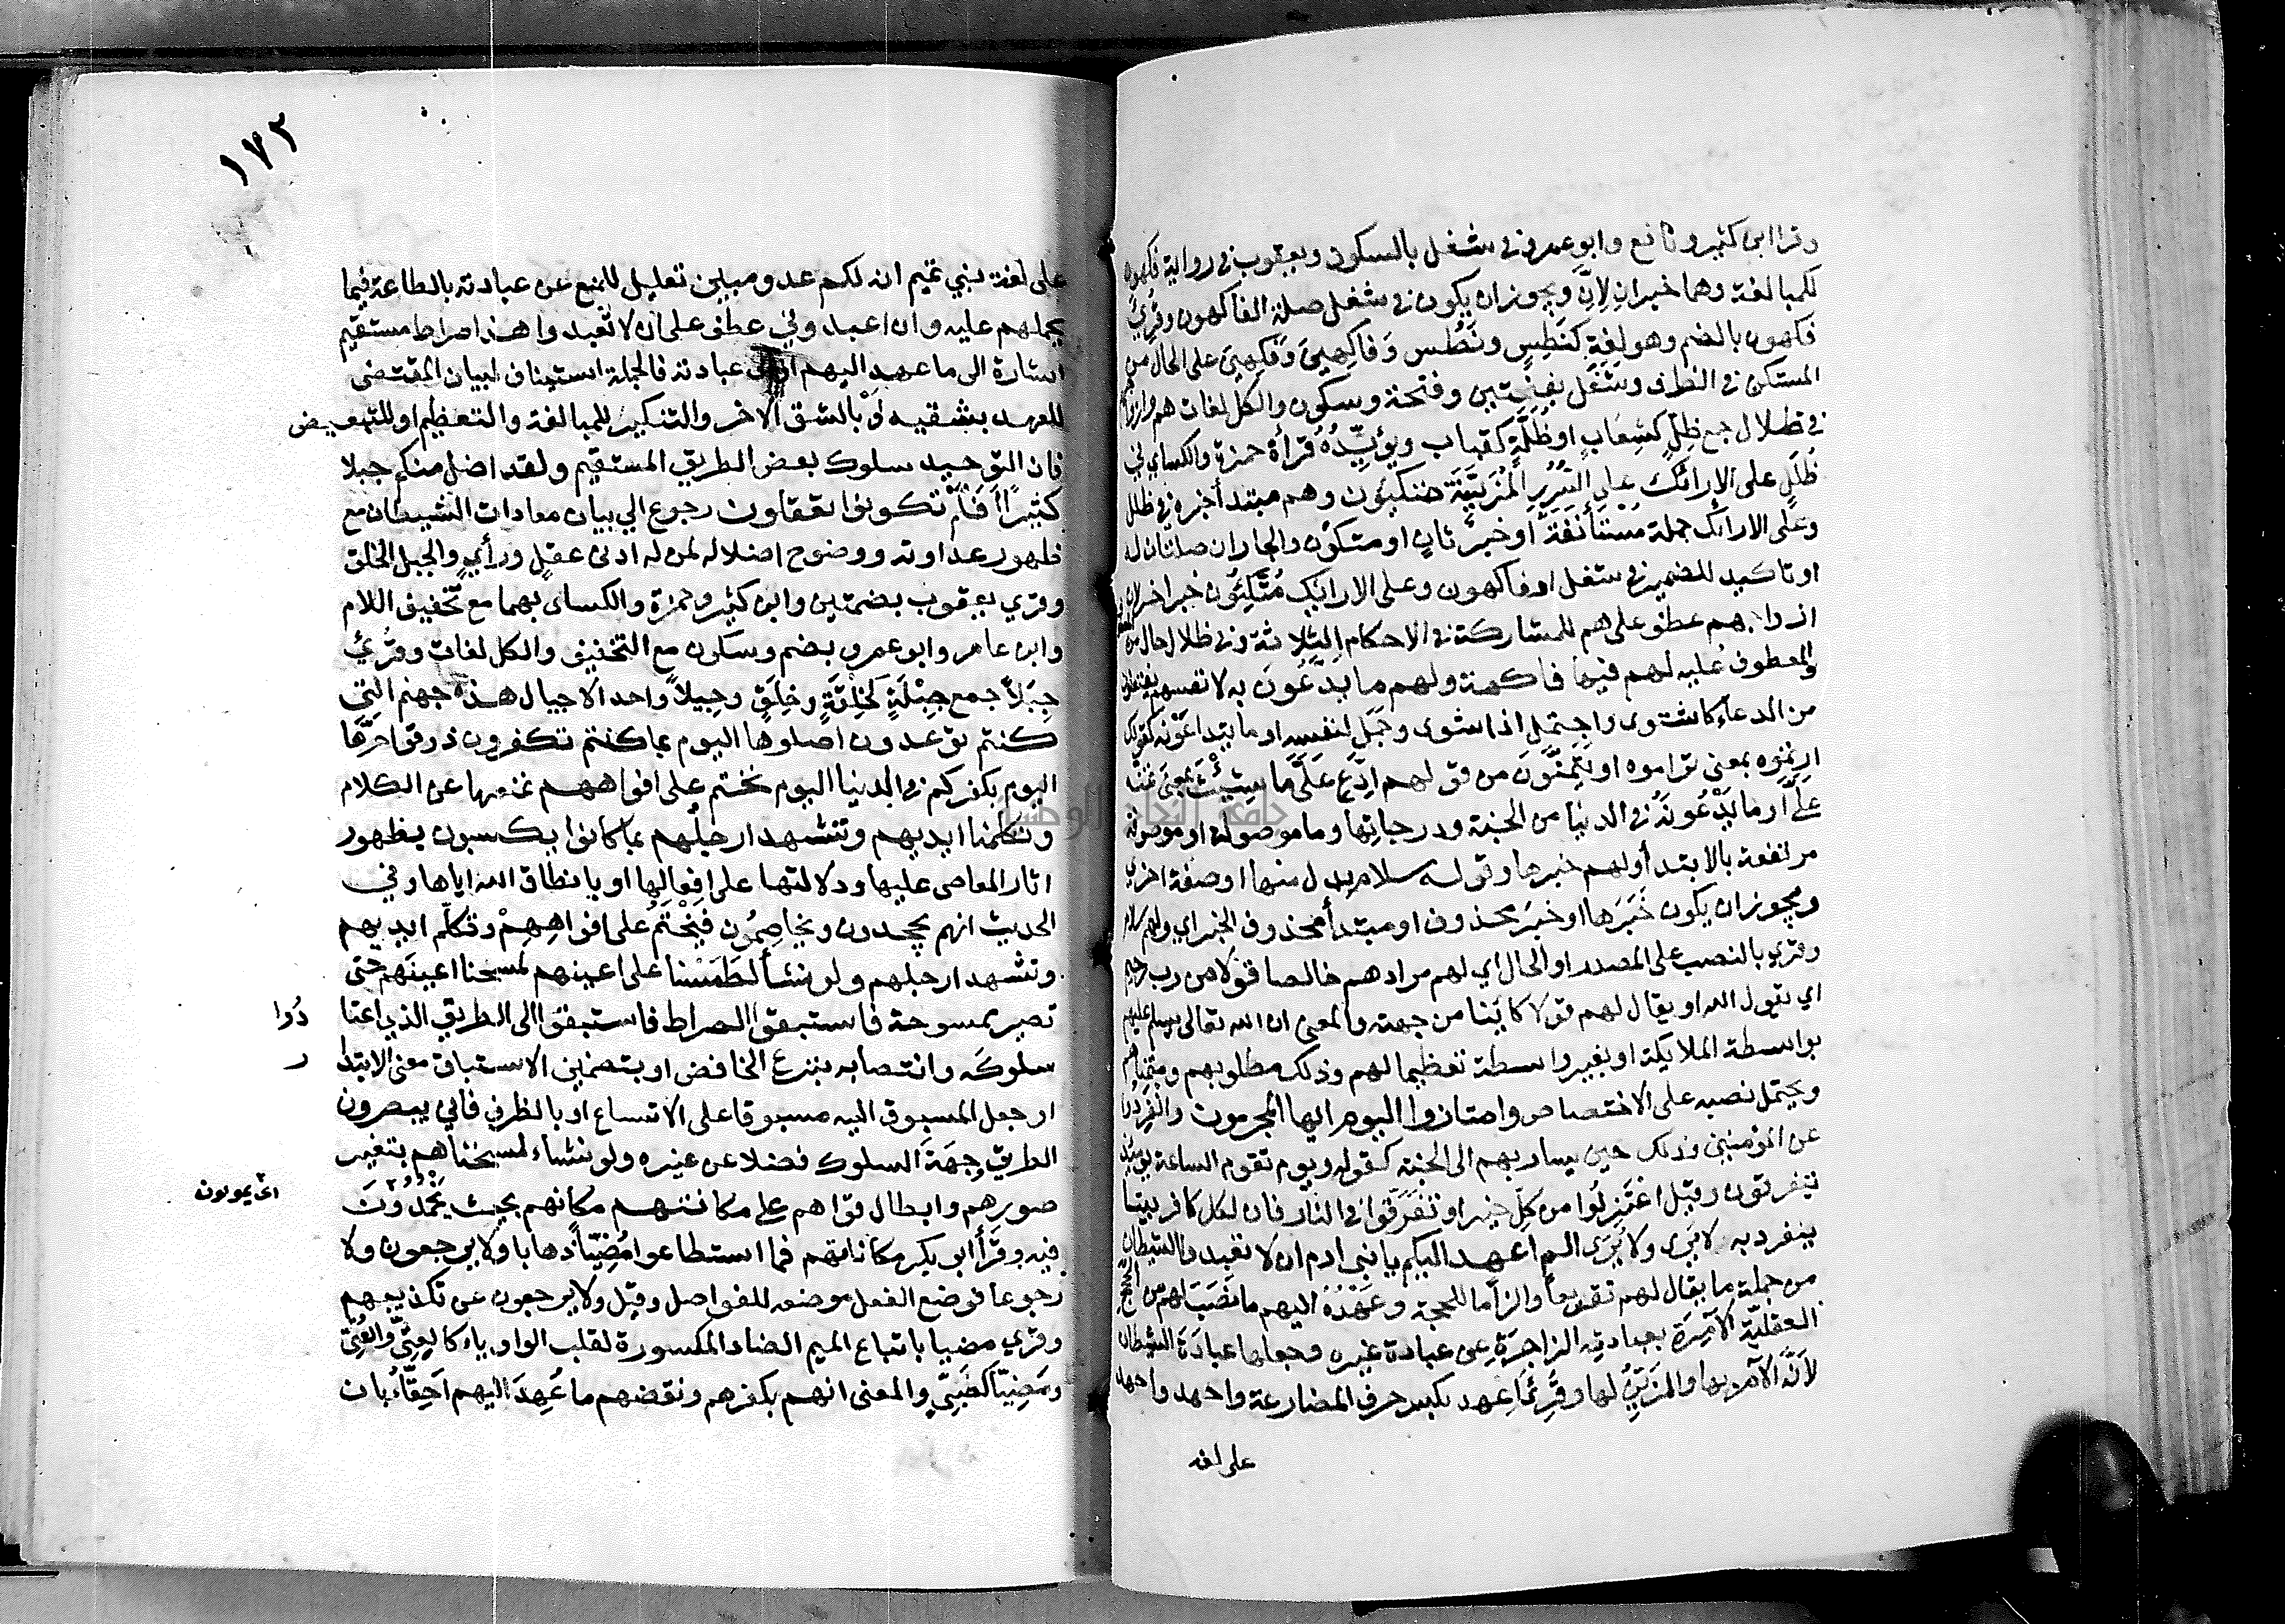 وقرا ابن كثير ونافع وابو عمرو في شغل بالسكون ويعقوب في رواية فكهون
للمبالغة وهما خبران لِاِنَّ ويجوز ان يكون في شغل صلة الفاكهون وقرئ
فكهون بالضم وهو لغة كنَطِسٍ ونَطُس وَفاكِهينَ وَفَكِهينَ على الحال من
المستكن في الظرف وشَغَل بفتحتين وفتحة وسكون والكل لغات هم وازواجهم
في ظلال جمع ظِلٍ كشِعَابٍ او ظُلَّةٍ كقباب ويؤيِّدُهُ قراة حمزة والكساي في
ظُلَلٍ على الارائك على السُرُرِ المُزَيَّنَة متكئون وهم مبتدأ خبره في ظلل
وعلى الارائك جملة مُسْتَأنَفَة او خبرٌ ثانٍ او متكؤن والجاران صلتان له
او تاكيد للضمير في شغل او فاكهون وعلى الارائك مُتَّكِئُون خبر اخر لان
ازواجهم عطف على هم للمشاركة في الاحكام الثلاثة وفي ظلال حال من المعطوف
والمعطوف عليه لهم فيها فاكهة ولهم ما يدَّعُونَ به لانفسهم يفتعلون
من الدعاء كاشتوى واجتمل اذا اشتوى وجَمَلَ لنفسه او ما يتداعَوْنه كقولك
ارتموه بمعنى تراموه او يَتَمنَّوْنَ من قولهم ادِّعِ عَلَىَّ ما شِئْتَ بمعنى تمنّه
علىَّ او ما يَدَّعُونَهُ في الدنيا من الجنة ودرجاتها وما موصولة او موصوفة
مرتفعة بالابتدأ ولهم خبرها وقوله سلام بدل منها او صفة اخرى
ويجوز ان يكون خَبَرَها او خبرَ محذوف او مبتدأ محذوف الخبر اي ولهم سلام
وقرئ بالنصب على المصدر او الحال اي لهم مرادهم خالصا قولا من رب رحيم
اي يقول الله او يقال لهم قولا كائنا من جهته والمعنى ان الله تعالى يسلم عليهم
بواسطة الملايكة او بغير واسطة تعظيما لهم وذلك مطلوبهم ومتمناهم
ويحتمل نصبه على الاختصاص وامتازوا اليوم ايها المجرمون وانْفَرِدُوا
عن المؤمنين وذلك حين يسار بهم الى الجنة كقوله ويوم تقوم الساعة يومئذ
يتفرقون وقيل اعْتَزِلُوا من كلّ خير او تَفَرَّقوا في النار فان لكل كافر بيتا
ينفرد به لا يَرى ولا يُرَى الم اعهد اليكم يا بنى ادم ان لا تعبدوا الشيطان
من جملة ما يقال لهم تقريعاً والزاما للحجة وعَهْدُهُ اليهم ما نَصَبَ لهم من الحجج
العقليّة الآمِرَة بعبادتِه الزاجرَةِ عن عبادة غيره وجعلها عبادَةَ الشيطان
لاَنَّه الآمر بها والمُزَيِّنُ لها وقُرِئَ اِعهد بكسر حرف المضارعة واحهد واحد
على لغه
١٧٢
على لغة بني تميم انه لكم عدو مبين تعليل للمنع عن عبادته بالطاعة فيما
يحملهم عليه وان اعبدوني عطف على ان لا تعبدوا هذا صراط مستقيم
اشارة الى ما عهد اليهم او الى عبادته فالجملة استيناف لبيان المقتضى
للعهد بشقيه اَوْ بالشق الاخر والتنكير للمبالغة والتعظيم او للتبعيض
فان التوحيد سلوك بعض الطريق المستقيم ولقد اضل منكم جبلا
كثيرًا اَفَلَمْ تكونوا تعقلون رجوع الى بيان معادات الشيطان مع
ظهور عداوته ووضوح اضلاله لمن له ادنى عقلٍ ورأيٍ والجبل الخلق
وقرئ يعقوب بضمتين وابن كثير وحمزة والكساى بهما مع تخفيف اللام
وابن عامر وابو عمرو بضم وسكون مع التخفيف والكل لغات وقُرئَ
جِبَلاً جمع جِبْلَةٍ كخِلقةٍ وخِلَقٍ وجِيلاً واحد الاجيال هذه جهنم التي
كنتم توعدون اصلوها اليوم بما كنتم تكفرون ذوقوا حَرَّها
اليوم بكفركم في الدنيا اليوم نختم على افواههم نمنعها عن الكلام
وتكلمنا ايديهم وتشهد ارجلُهم بما كانوا يكسبون بظهور
اثار المعاصى عليها ودلالتها على افعالها او بانطاق الله اياها وفي
الحديث انهم يجحدون ويخاصِمُون فيُخْتَمُ على افواهِهِمْ وتكلّم ايديهم
وتشهد ارجلهم ولو نشأ لطَمَسْنا على اعينهم لمسحنا اعينَهم حتى
تصير ممسوحة فاستبقوا الصراط فاستبقَوا الى الطريق الذي اعتا
دُوا
سلوكَه وانتصابه بنزع الخافض او بتضمين الاستباق معنى الابتدا
ر
او جعل المسبوق اليه مسبوقا على الاتساع او بالظرف فانى يبصرون
الطريق وجهَةَ السلوك فضلا عن غيره ولو نشاء لمسخناهم بتغيير
صورهم وابطال قواهم على مكانتهم مكانهم بحيث يَجْمُدُونَ
اى يموتون
فيه وقرأ ابو بكر مكاناتهم فما استطاعوا مُضِيّاً ذهابا ولا يرجعون ولا
رجوعا فوضع الفعل موضعه للفواصل وقيل ولا يرجعون عن تكذيبهم
وقرئ مضيا باتباع الميم الضاد المكسورة لقلب الواو ياء كالعِتِىّ والعُتِىّ
ومَضِيّاً كصَبِىٍّ والمعنى انهم بكفرهم ونقضهم ما عُهِدَ اليهم اَحِقّاءُ بان